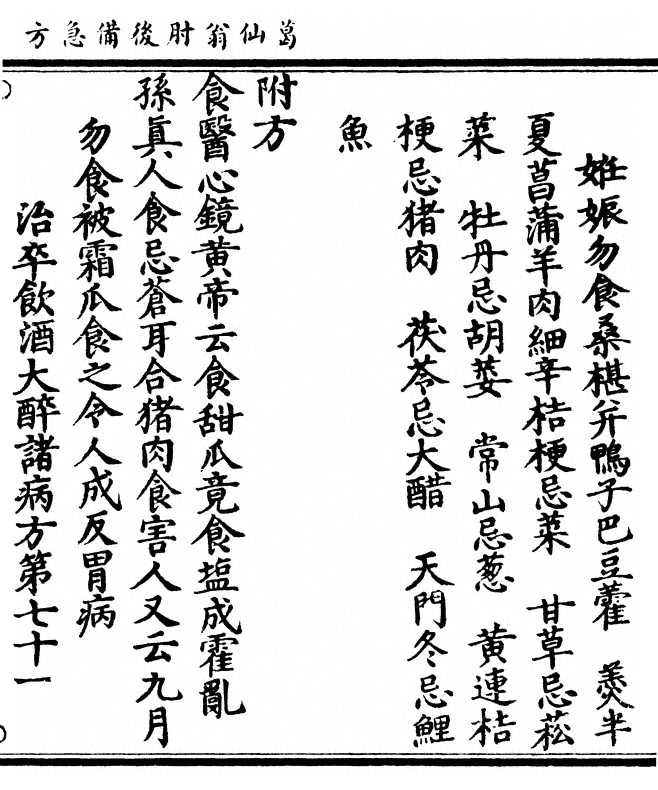 葛仙翁肘後備急方
姙娠勿食桑椹并鴨子巴豆藿 羮半
夏菖蒲羊肉細辛桔梗忌菜 甘草忌菘
菜 牡丹忌胡荽 常山忌葱 黄連桔
梗忌猪肉 茯苓忌大醋 天門冬忌鯉
魚
附方
食醫心鏡黄帝云食甜瓜竟食塩成霍亂
孫眞人食忌蒼耳合猪肉食害人又云九月
勿食被霜瓜食之令人成反胃病
治卒飲酒大醉諸病方第七十一